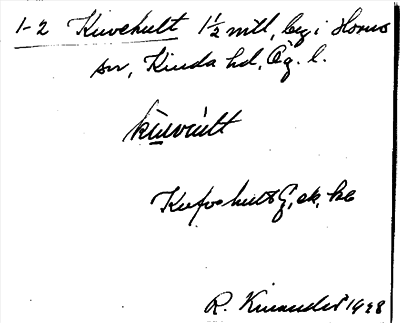 1-2 Kuvehult 1½ mtl, beg. i Horns
sn, Kinda hd, Ög. l.
kuvult
Kufvehult
R. Kinander 1928